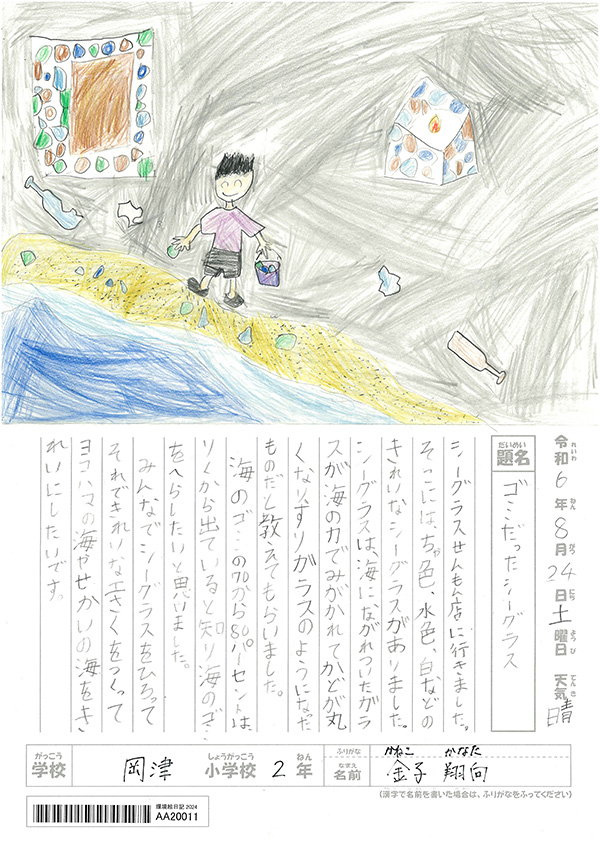 令和6年8月24日土曜日 天気 晴
れいわ ねん がつ にち ようび てんき
だいめい
題名 ゴミだったシーグラス
シーグラスせんもん店に行きました。
そこには、ちゃ色、水色、白などの
きれいなシーグラスがありました。
シーグラスは、海にながれついたガラ
スが海の力でみがかれてかどが丸
くなり、すりガラスのようになった
ものだと教えてもらいました。
海のゴミの70から80パーセントは、
りくから出ていると知り海のゴミ
をへらしたいと思いました。
みんなでシーグラスをひろって
それできれいな工さくをつくって
ヨコハマの海やせかいの海をき
れいにしたいです。
がっこう しょうがっこう ねん
学校 岡津 小学校 2年
ふりがな かねこ かなた
なまえ
名前 金子 翔向
(漢字で名前を書いた場合は、ふりがなをふってください)
環境絵日記2024
AA20011